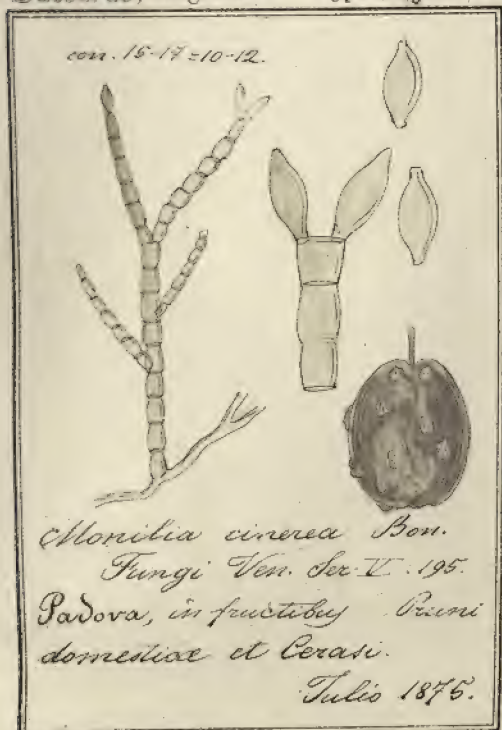 con. 15-17=10-12.
Monilia cinerea Bon.
Fungi Ven. Ser. V. 195.
Padova, in fructibus Pruni
domesticae et Cerasi.
Julio 1875.